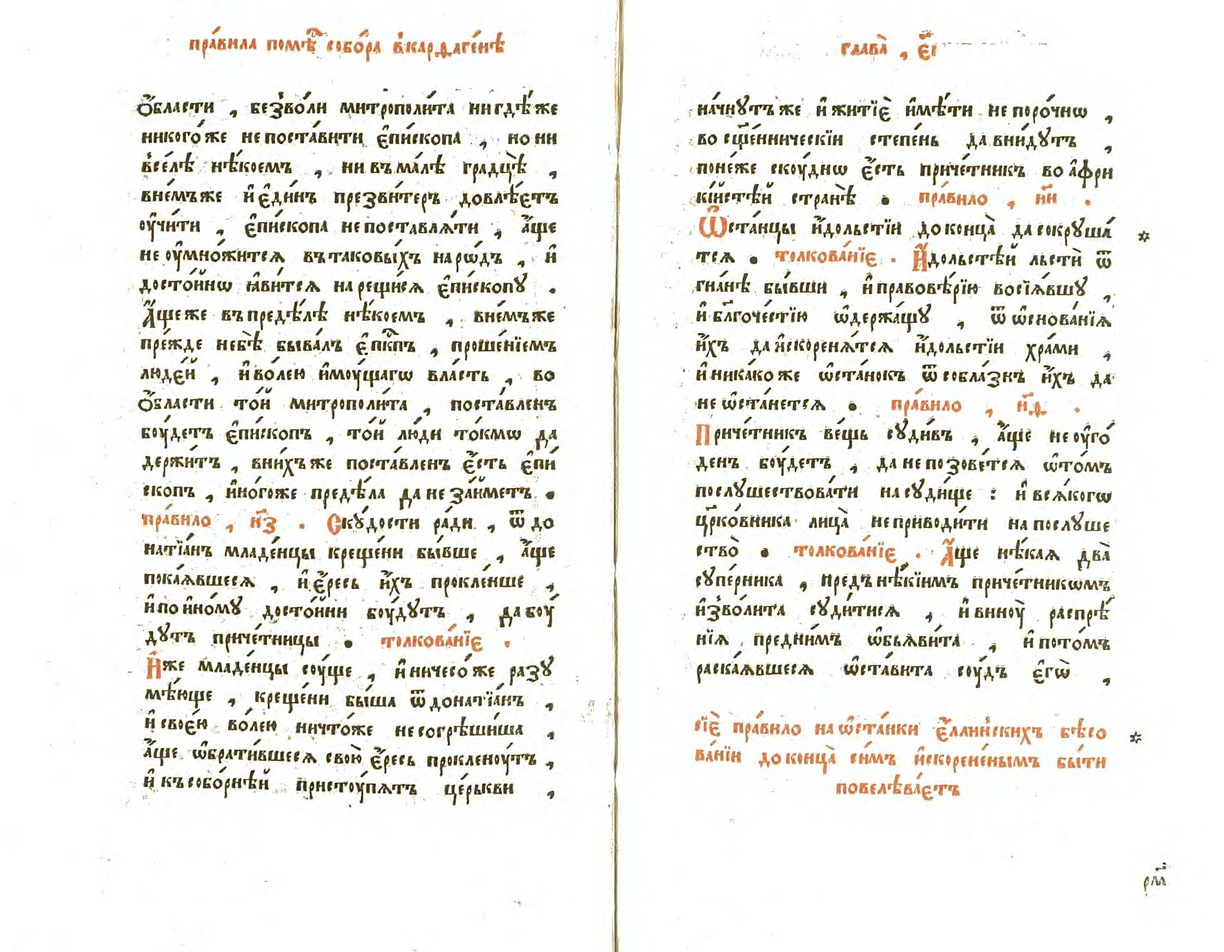 пра́вила помѣ́ст собо́ра в҆карѳаге́нѣ
ѻ҆́бласти , безво́ли митрополи́та нигдѣ́же
никого́же не поста́вити є҆пи́скопа , но ни
в҆се́лѣ нѣ́коемъ , ни въ ма́лѣ градцѣ̀ ,
вне́мъже и҆ є҆ди́нъ презви́теръ довлѣ́етъ
оу҆чи́ти , є҆пи́скопа не поставлѧ́ти , а҆́ще
не оу҆мно́житсѧ въ таковы́хъ наро́дъ , и҆
досто́йнѡ ꙗ҆́витсѧ нарещи́сѧ є҆пи́скопꙋ .
А҆́ще же въ предѣ́лѣ нѣ́коемъ , вне́мъже
пре́жде небѣ̀ быва́лъ є҆пⷭ҇кпъ , проше́нїемъ
люде́й , и҆ во́лею и҆моу́щагѡ вла́сть , во
ѻ҆́бласти то́й митрополи́та , поста́вленъ
боу́детъ є҆пи́скопъ , то́й лю́ди то́кмѡ да
держи́тъ , вни́хъже поста́вленъ є҆́сть є҆пи
скопъ , и҆но́гоже предѣ́ла да не за́йметъ .
пра́вило , н҃з . Скꙋ́дости ра́ди , ѿ до
натїа́нъ младе́нцы креще́ни бы́вше , а҆́ще
пока́ѧвшесѧ , и҆ є҆́ресь и҆́хъ прокле́нше ,
и҆ по и҆но́мꙋ досто́йни боу́дутъ , да боу́
дꙋтъ приче́тницы . толкова́нїе .
И҆́же младе́нцы соу́ще , и҆ ничесо́же разꙋ
мѣ́юще , креще́ни бы́ша ѿ донатїа́нъ ,
и҆ свое́ю во́лею ничто́же не согрѣши́ша ,
а҆́ще ѡ҆брати́вшесѧ свою̀ є҆́ресь прокленоу́тъ ,
и҆ къ собо́рнѣй присто́упѧтъ це́рькви ,
глава̀ , є҃і
начнꙋ́тъ же и҆ житїѐ и҆мѣ́ти не поро́чнѡ ,
во сщ҃е́нническїи сте́пень да вни́дꙋтъ ,
поне́же скоу́днѡ є҆́сть приче́тникъ во а҆фри
кі́йстѣй странѣ̀ . пра́вило , н҃и .
Ѡ҆ста́нцы и҆́дольстїи до конца̀ да сокрꙋша́
тсѧ . толкова́нїе . И҆́дольстѣй льстѝ ѿ
гна́нѣ бы́вши , и҆ правовѣ́рїю восїѧ́вшꙋ ,
и҆ бл҃гоче́стїю ѡ҆держа́щꙋ , ѿ ѡ҆снова́нїѧ
и҆́хъ да и҆скоренѧ́тсѧ и҆́дольстїи хра́ми ,
и҆ ника́коже ѡ҆ста́нокъ ѿ собла́знъ и҆́хъ да
не ѡ҆ста́нетсѧ . пра́вило , н҃ѳ .
Приче́тникъ ве́щь сꙋди́въ , а҆́ще не оу҆го́
денъ боу́детъ , да не позове́тсѧ ѡ҆то́мъ
послꙋ́шествовати на сꙋди́ще : и҆ всѧ́когѡ
цр҃ко́вника лица̀ не приводи́ти на послꙋше
ство̀ . толкова́нїе . А҆́ще нѣ́каѧ два̀
сꙋпе́рника , предъ нѣ́кїимъ приче́тникѡмъ
и҆зво́лита сꙋди́тисѧ , и҆ виноу̀ распрѣ́
нїѧ пред ни́мъ ѡ҆бьѧви́та , и҆ пото́мъ
раска́ѧвшесѧ ѡ҆ста́вита соу́дъ є҆гѡ̀ ,
сїѐ пра́вило на ѡ҆ста́нки є҆́ллинскихъ бѣсо
ва́нїи до конца̀ си́мъ и҆скорене́нымъ бы́ти
повелѣва́етъ
рм҃